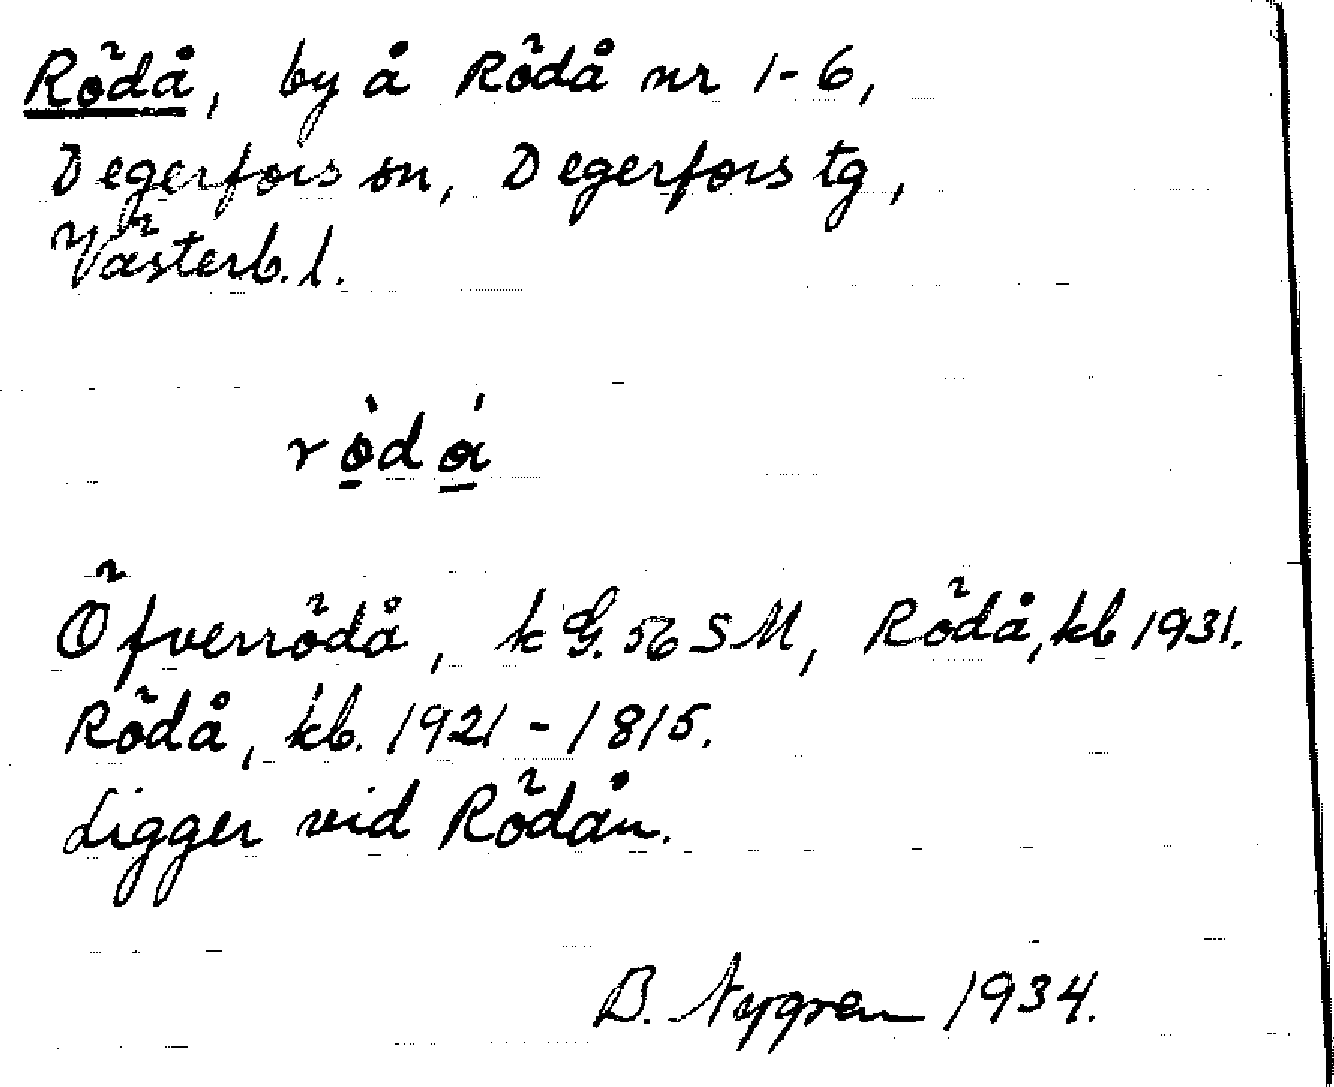 Rödå, by å Rödå nr 1-6,
Degerfors sn, Degerfors tg,
Västerb. l.
rödå
Öfverrödå, k G. 56 SM, Rödå, kb 1931.
Rödå, kb. 1921 - 1815.
Ligger vid Rödån.
B. Nygren 1934.